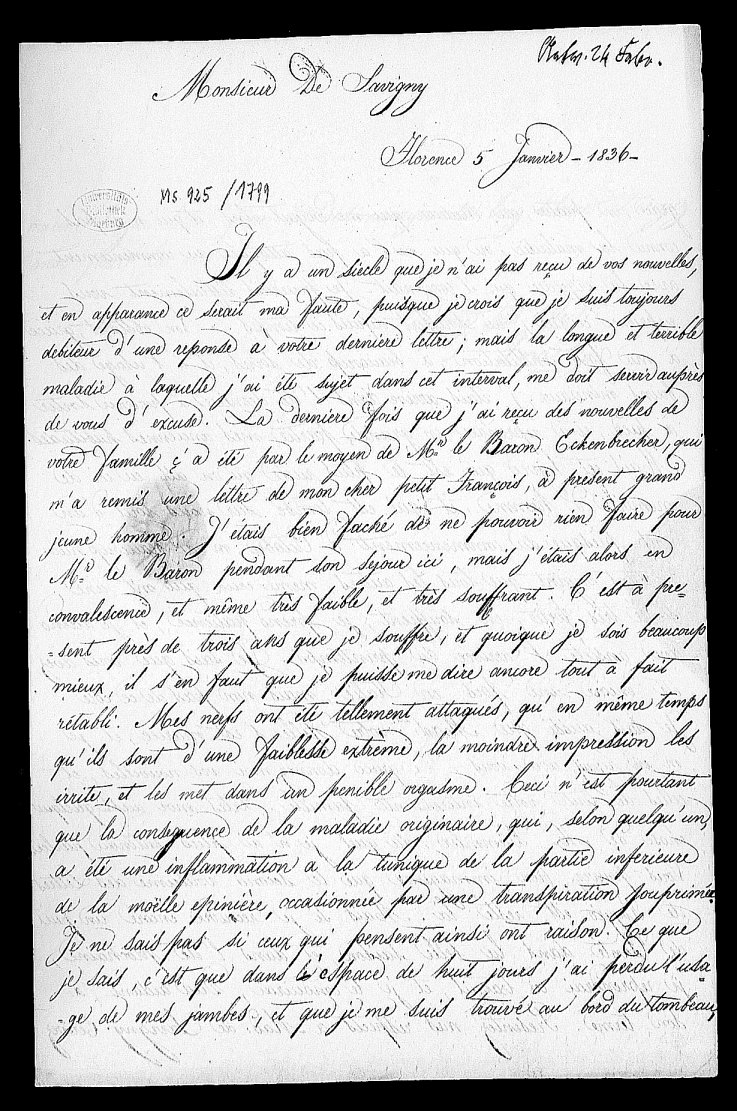 24 Febr.
Monsieur De Savigny
Florence 5 Janvier - 1836 -
Ms. 925 / 1799
Il y a un siècle que je n'ai pas reçu de vos nouvelles,
et en apparance ce serait ma faute, puisque je crois que je suis toujours
debiteur d'une reponse a votre dernière lettre; mais la longue et terrible
maladie à laquelle j'ai été sujet dans cet interval, me doit servir auprès
de vous d'excuse. La derniere fois que j'ai reçu des nouvelles de
votre famille ç'a été par le moyen de Mr. le Baron Eckenbrecher, qui
m'a remis une lettre de mon cher petit François, à present grand
jeune homme. J'étais bien faché de ne pouvoir rien faire pour
Mr. le Baron pendant son sejour ici, mais j'étais alors en
convalescence, et même très faible, et très souffrant. C'est à pre=
=sent près de trois ans que je souffre, et quoique je sois beaucoup
mieux, il s'en faut que je puisse me dire ancore tout a fait
rétabli. Mes nerfs ont été tellement attaqués, qu'en même temps
qu'ils sont d'une faiblesse extrème, la moindre impression les
irrite, et les met dans un penible orgasme. Ceci n'est pourtant
que la consequence de la maladie originaire, qui, selon quelqu'un,
a été une inflammation a la tunique de la partie inferieure
de la moëlle epinière, occasionnée par une transpiration souprimée.
Je ne sais pas si ceux qui pensent ainsi ont raison. Ce que
je sais, c'est que dans l'espace de huit jours j'ai perdu l'usa=
=ge de mes jambes, et que je me suis trouvé au bord du tombeau,